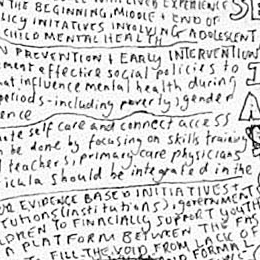 LIVED EXPERIENCE
N THE BEGINNING, MIDDLE + END OF
LICY INITATIVES INVOLVING ADOLESCENT
CHILD MENTAL HEALTH
N PREVENTION + EARLY INTERVENTION
ment effective social policies to
at influence mental health during
periods - including poverty, gender
ence
ote self care and connect access
n be done by focusing on skills training
l teachers, primary care physicians
icula should be integrated in the
OR EVIDENCE BASED INITIATIVES +
TUTIONS (institutions), governments
LDREN TO FINACIALLY SUPPORT YOUTH
A PLATFORM BETWEEN THE
TO FILL THE VOID FROM LACK OF
AND FORMAL